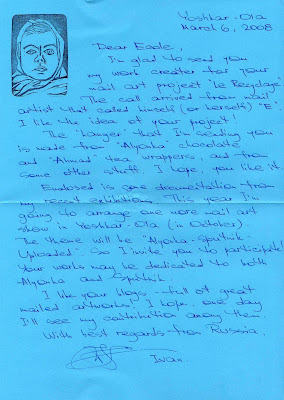 Yoshkar-Ola
March 6, 2008
Dear Eagle,
I'm glad to send you
my work creater for your
mail art project "Le Recyclage".
The call arrived from mail
artist that called himself (or herself) "E".
I like the idea of your project!
The "hanger" that I'm sending you
is made from "Alyonka" chocolate
and "Ahmad" tea wrappers, and from
some other stuff. I hope, you like it.
Enclosed is some documentation from
my recent exhibition. This year I'm
going to arrange one more mail art
show in Yoshkar-Ola (in October).
The theme will be "Alyonka-Sputnik.
Uploaded". So I invite you to participate!
Your works may be dedicated to both
Alyonka and Sputnik.
I like your blogs - full of great
mailed artworks. I hope, one day
I'll see my contribution among them.
With best regards from Russia,
Ivan.